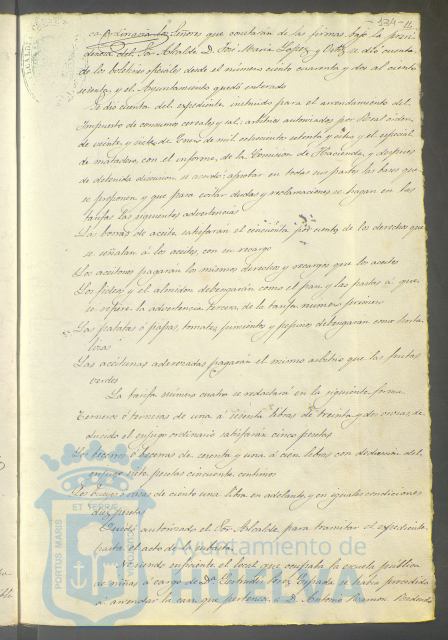 134-11
ca ordinaria los Señores que constarán de las firmas, bajo la presi-
dencia del Sor Alcalde D. José Maria Lopez y Ortiz, se dió cuenta
de los boletines oficiales desde el número ciento cuarenta y dos al ciento
setenta y el Ayuntamiento quedó enterado
Se dió cuenta del expediente instruido para el arrendamiento del
Impuesto de consumos cereales y sal; arbitrios autorizados por Real orden
de veinte y siete de Enero de mil ochocientos setenta y ocho y el especial
de matadero, con el informe de la Comision de Hacienda, y despues
de detenida discusion se acordó aprobar en todas sus partes las bases que
se proponen y que para evitar dudas y reclamaciones se hagan en las
tarifas las siguientes advertencias
Las borras de aceite satisfaran el cincuenta por ciento de los derechos que
se señalan á los aceites, con su recargo
Los aceitones pagarán los mismos derechos y recargos que los aceites
Los fideos y el almidon devengarán como el pan y las pastas á que
se refiere la advertencia tercera de la tarifa número primero
Las patatas ó papas, tomates, pimientos y pepinos devengaran como horta-
lizas
Las aceitunas aderezadas pagarán el mismo arbitrio que las frutas
verdes
La tarifa número cuatro se redactará en la siguiente forma
Terneros ó terneras de una á sesenta libras de treinta y dos onzas, de-
ducido el enjugo ordinario satisfarán cinco pesetas
Los becerros ó becerras de sesenta y una á cien libras con deduccion del
enjugo siete pesetas cincuenta centimos
Los bueyes ó vacas de ciento una libra en adelante, y en iguales condiciones
diez pesetas
Quedó autorizado el Sor Alcalde para tramitar el expediente
hasta el acto de la subasta
No siendo suficiente el local que ocupaba la escuela publica
de niñas á cargo de Dª Gertrudis Perez Espada se habia procedido
á arrendar la casa que pertenece á D. Antonio Ramon
PORTUS MARIS ET TERRAE
Ayuntamiento de
HUELVA